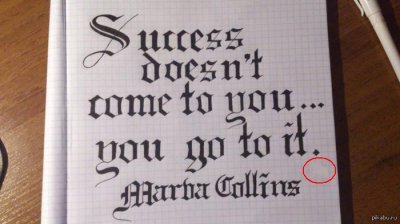 Success
doesn't
come to you...
you go to it.
Marva Collins
pikabu.ru